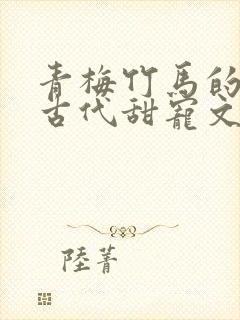 青梅竹馬的
古代甜寵文
陸菁